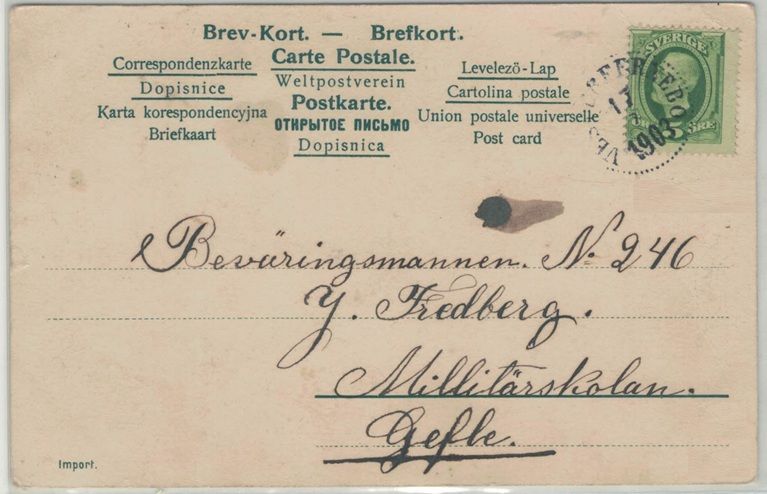 Brev-Kort. — Brefkort.
Correspondenzkarte Carte Postale. Levelező-Lap
Dopisnice Weltpostverein Cartolina postale
Karta korespondencyjna Postkarte. Union postale universelle
Briefkaart ОТКРЫТОЕ ПИСЬМО Post card
Dopisnica
SVERIGE
5 ÖRE
1903
Beväringsmannen. No 246
Y. Fredberg.
Millitärskolan.
Gefle.
Import.